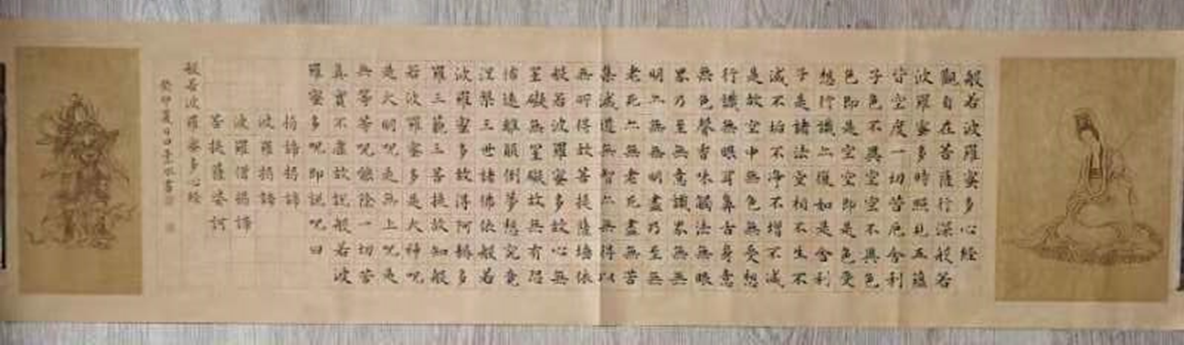 般若波羅蜜多心經
觀自在菩薩行深般若
波羅蜜多時照見五蘊
皆空度一切苦厄舍利
子色不異空空不異色
色即是空空即是色受
想行識亦復如是舍利
子是諸法空相不生不
滅不垢不淨不增不減
是故空中無色無受想
行識無眼耳鼻舌身意
無色聲香味觸法無眼
界乃至無意識界無無
明亦無無明盡乃至無
老死亦無老死盡無苦
集滅道無智亦無得以
無所得故菩提薩埵依
般若波羅蜜多故心無
罣礙無罣礙故無有恐
怖遠離顛倒夢想究竟
涅槃三世諸佛依般若
波羅蜜多故得阿耨多
羅三藐三菩提故知般
若波羅蜜多是大神呪
是大明呪是無上呪是
無等等呪能除一切苦
真實不虛故說般若波
羅蜜多呪即說呪曰
揭諦揭諦
波羅揭諦
波羅僧揭諦
菩提薩婆訶
般若波羅蜜多心經
癸卯夏日書